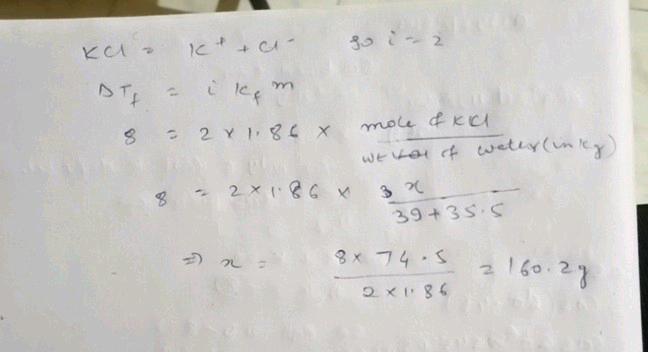 KCl = K⁺ + Cl⁻ so i = 2
ΔT_f = i K_f m
8 = 2 × 1.86 × mole of KCl / wt of water (in kg)
8 = 2 × 1.86 × x / 39 + 35.5
⇒ x = 8 × 74.5 / 2 × 1.86 = 160.2 g